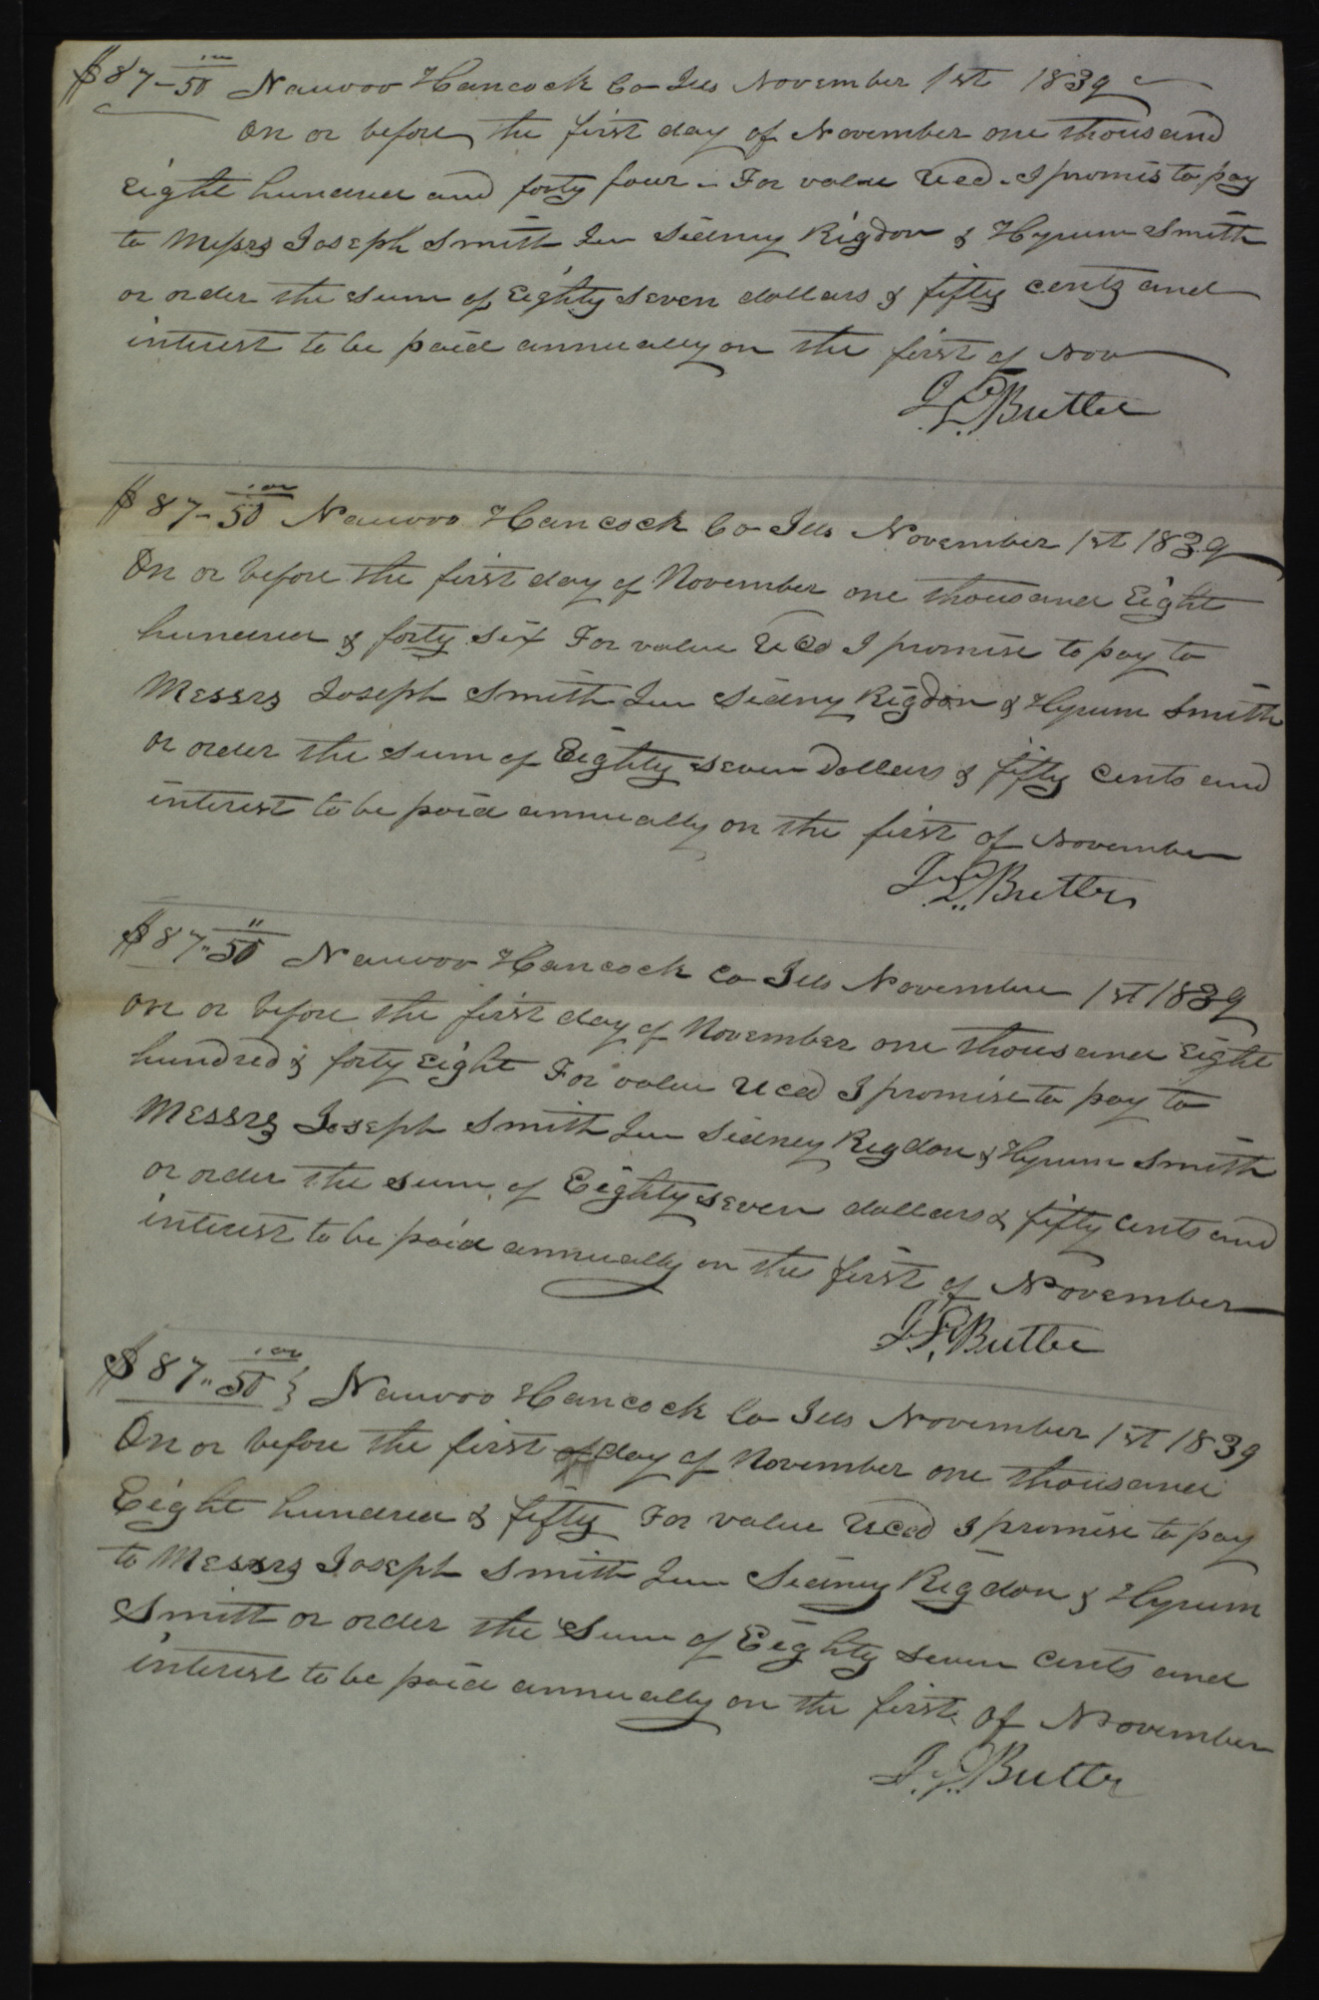 $87-50 Nauvoo Hancock Co Ills November 1st 1839
On or before the first day of November one thousand
Eight hundred and forty four - For value Recd - I promis to pay
to Messrs Joseph Smith Jun Sidney Rigdon & Hyrum Smith
or order the sum of Eighty seven dollars & fifty cents and
interest to be paid annually on the first of Nov
J L Butler
$87-50 Nauvoo Hancock Co Ills November 1st 1839
On or before the first day of November one thousand Eight
hundred & forty six For value Recd I promise to pay to
Messrs Joseph Smith Jun Sidny Rigdon & Hyrum Smith
or order the sum of Eighty seven Dollars & fifty cents and
interest to be paid annually on the first of November
J L Butler
$87"50 Nauvoo Hancock Co Ills November 1st 1839
On or before the first day of November one thousand Eight
hundred & forty Eight For value Recd I promise to pay to
Messrs Joseph Smith Jun Sidney Rigdon & Hyrum Smith
or order the sum of Eighty seven dollars & fifty cents and
interest to be paid annually on the first of November
J L Butler
$87"50 } Nauvoo Hancock Co Ills November 1st 1839
On or before the first of day of November one thousand
Eight hundred & fifty For value Recd I promise to pay
to Messrs Joseph Smith Jun Sidney Rigdon & Hyrum
Smith or order the Sum of Eighty seven cents and
interest to be paid annually on the first of November
J L Butler